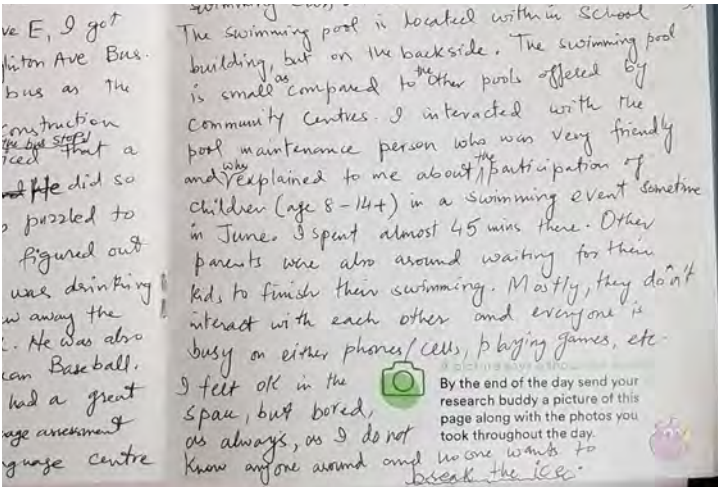 ve E, I got
Ave Bus.
bus as the
onstruction
the bus stop
iced that a
He did so
puzzled to
figured out
was drinking
w away the
. He was also
can Baseball.
had a great
age assessment
guage centre
swimming
The swimming pool is located within school
building, but on the backside. The swimming pool
is small as compared to the other pools offered by
community centres. I interacted with the
pool maintenance person who was very friendly
and why explained to me about the participation of
children (age 8-14+) in a swimming event sometime
in June. I spent almost 45 mins there. Other
parents were also around waiting for their
kids to finish their swimming. Mostly, they don't
interact with each other and everyone is
busy on either phones/cells, playing games, etc.
I felt OK in the
space, but bored,
as always, as I do not
know anyone around and no one wants to
break the ice.
By the end of the day send your
research buddy a picture of this
page along with the photos you
took throughout the day.